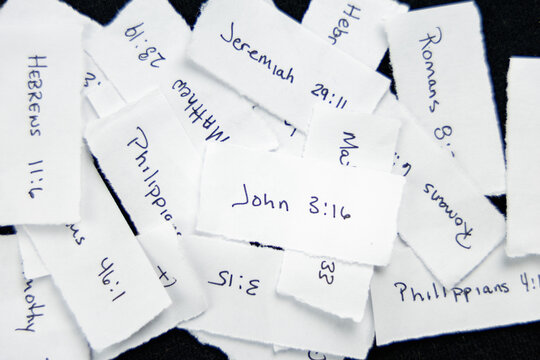 28:19
Hebr
Jeremiah 29:11
Romans 8:
Hebrews 11:6
Matthew
Philippians
Ma
Romans
John 3:16
46:1
3:15
33
Philippians 4:1
mothy